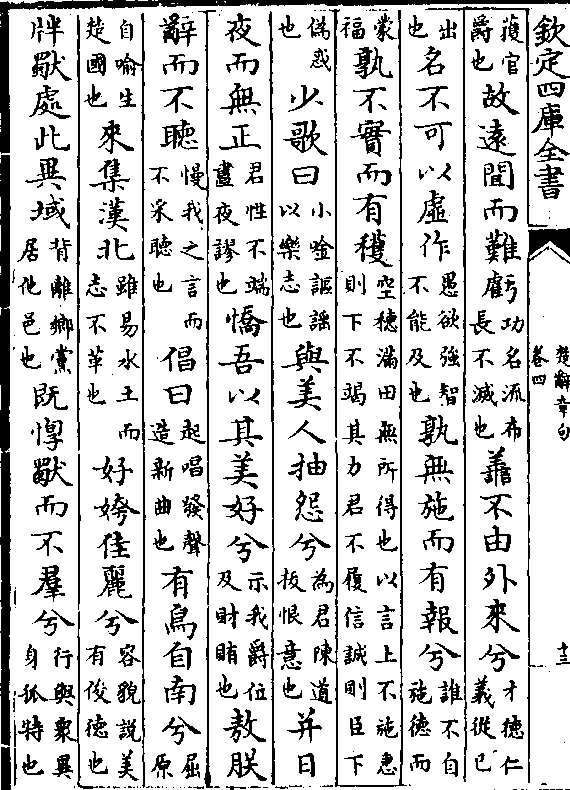 欽定四庫全書
楚辭章句
卷四
十三
獲官爵也故遠聞而難虧功名流布長不滅也善不由外來兮才德仁義從己
出也名不可以虛作愚欲強智不能及也孰無施而有報兮誰不自施德而
蒙福孰不實而有穫空穗滿田無所得也以言上不施惠則下不竭其力君不履信誠則臣下
偽惑也少歌曰小唫謳謠以樂志也與美人抽怨兮為君陳道拔恨意也并日
夜而無正君性不端晝夜謬也憍吾以其美好兮示我爵位及財賄也敖朕
辭而不聽慢我之言而不采聽也倡曰起唱發聲造新曲也有鳥自南兮屈原
自喻生楚國也來集漢北雖易水土而志不革也好姱佳麗兮容貌說美有俊德也
牉獨處此異域背離鄉黨居他邑也既惸獨而不羣兮行與衆異身孤特也